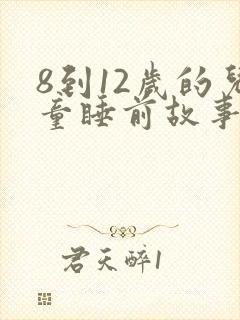 8到12歲的兒
童睡前故事
君天醉1